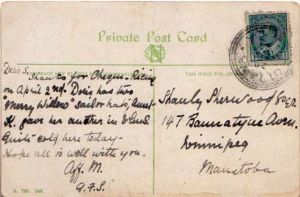 Private Post Card
THIS SPACE FOR
Dear S.
Thanks for Cheque. Rec'd
on April 2nd. Doris has two
"Merry Widow" sailor hats. Aunt
K. gave her another in
Quite cold here today
Hope all is well with you.
Aff. M.
G.F.S.
Stanly Sherwood Esq
147 Bannatyne Aven.
Winnipeg
Manatoba